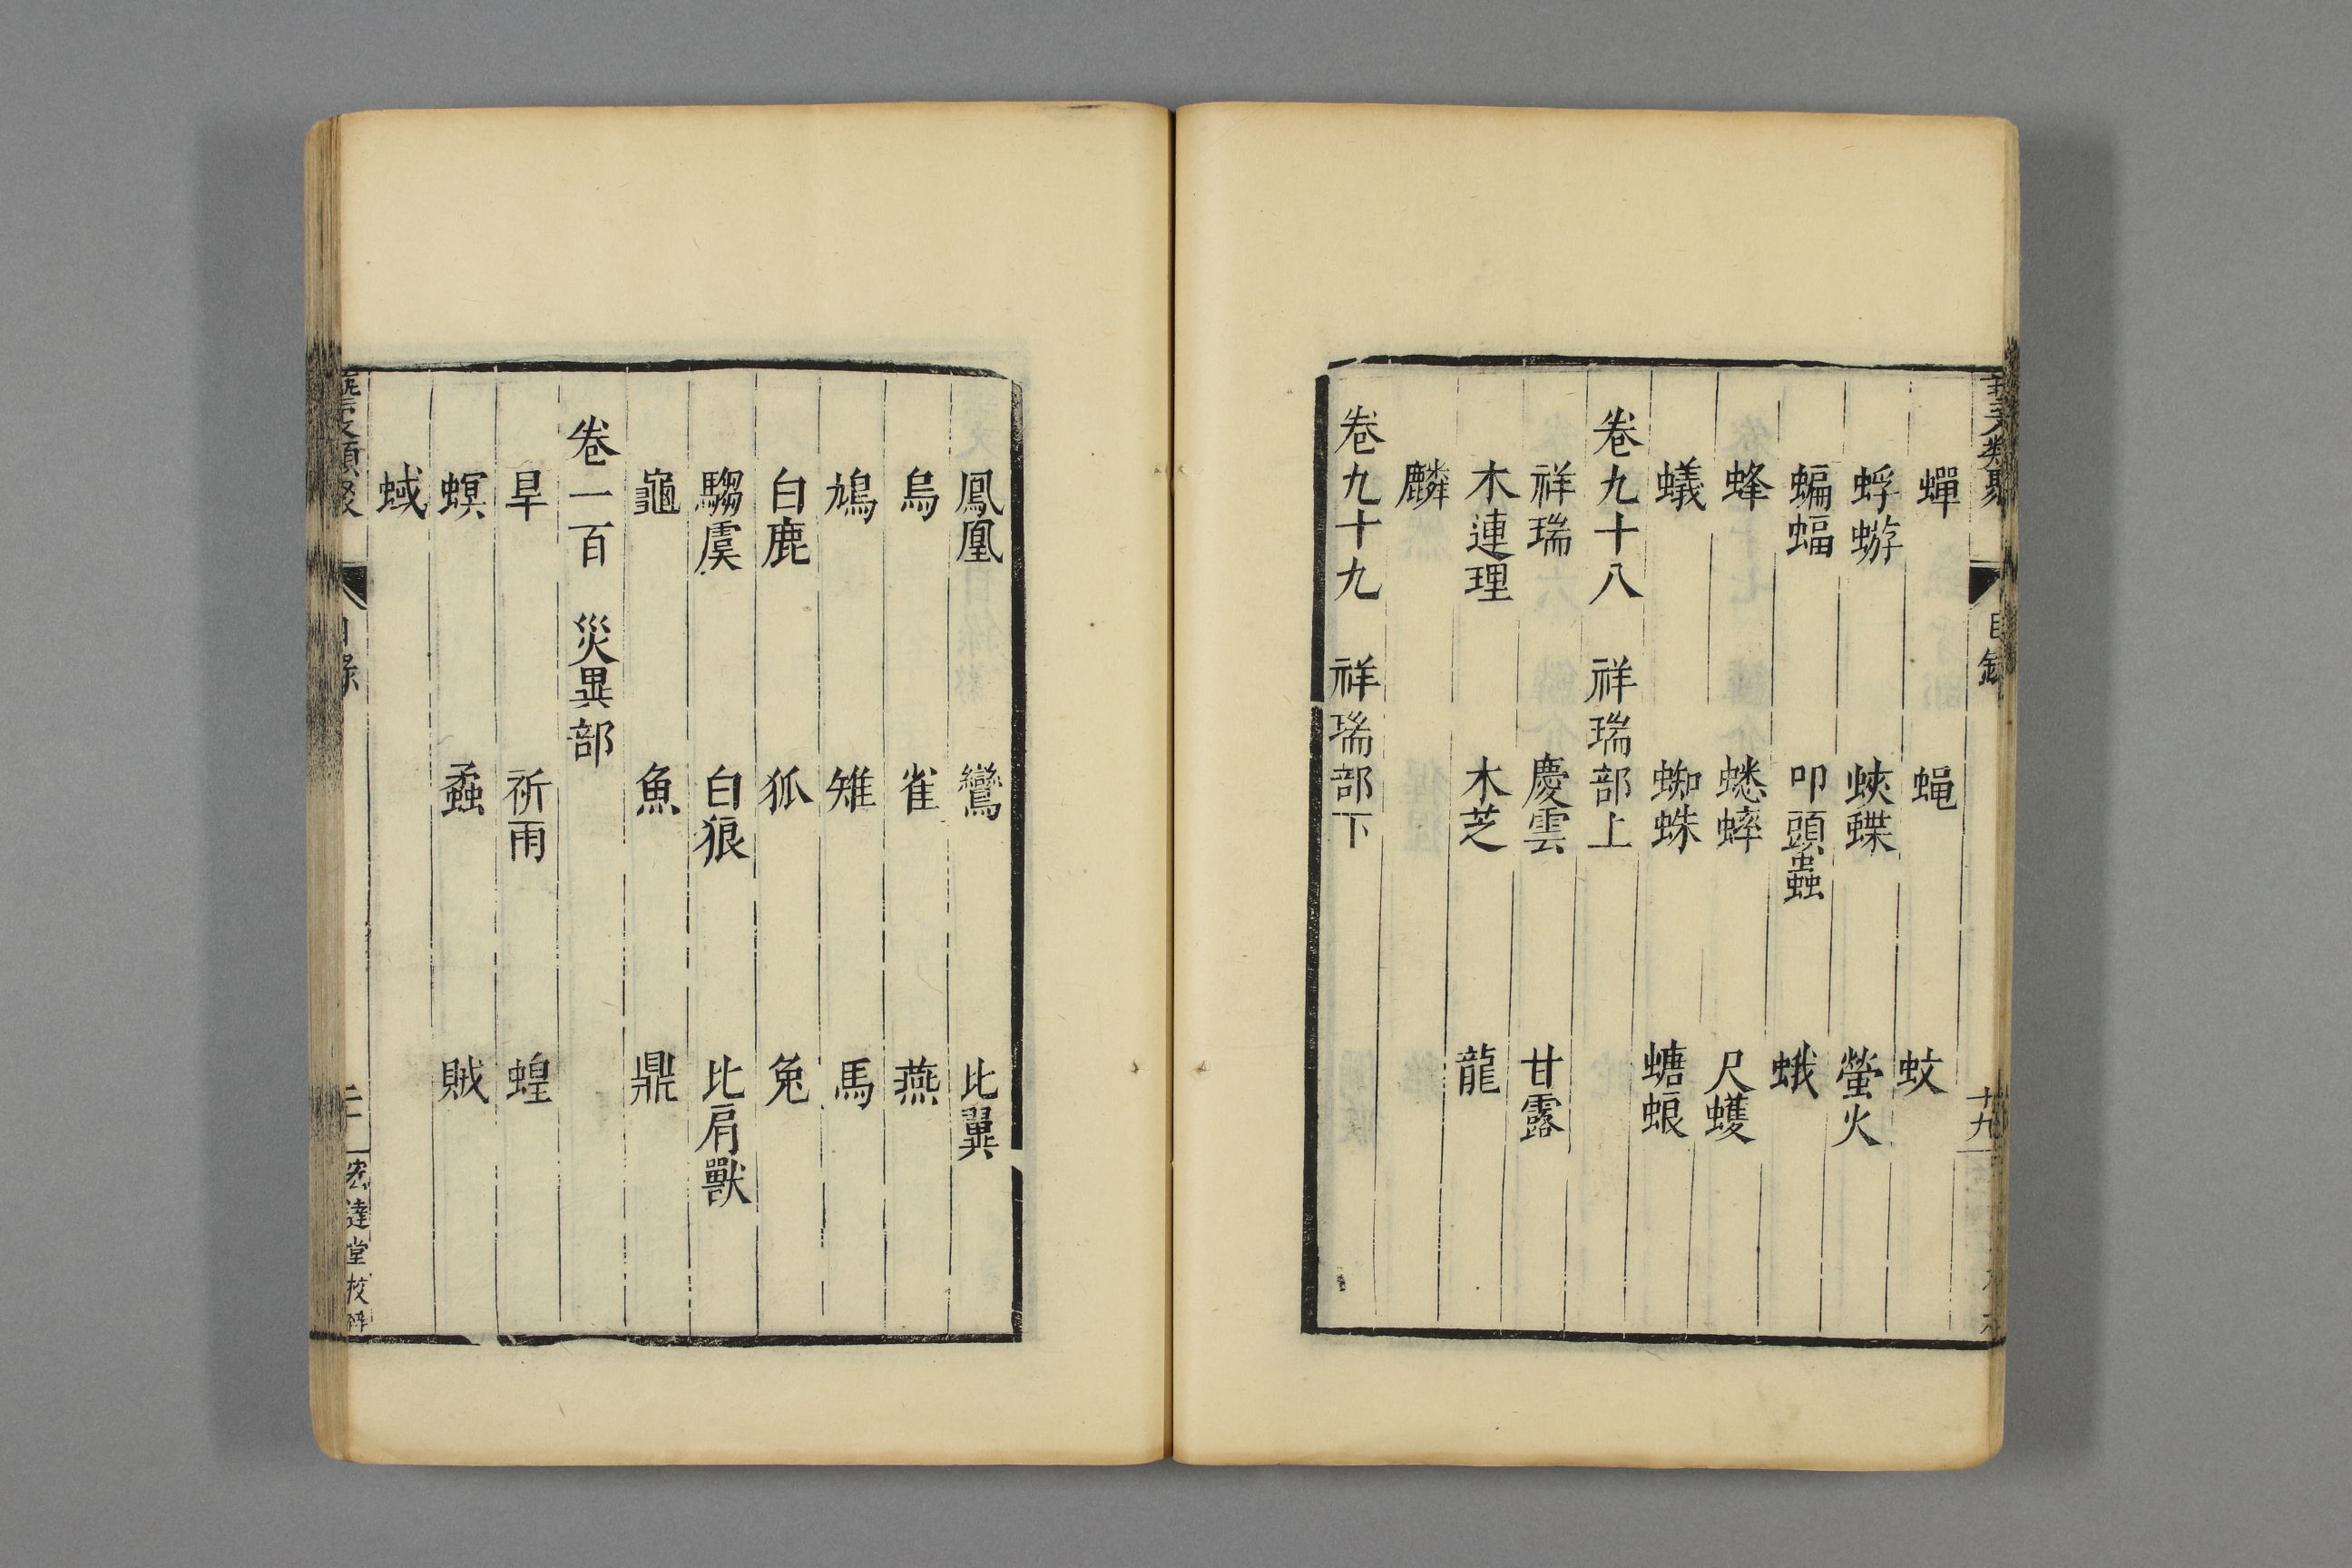 蟬　蝇　蚊
蜉蝣　蛺蝶　螢火
蝙蝠　叩頭蟲　蛾
蜂　蟋蟀　尺蠖
蟻　蜘蛛　螗蜋
卷九十八　祥瑞部上
祥瑞　慶雲　甘露
木連理　木芝　龍
麟
卷九十九　祥瑞部下
鳳凰　鸞　比翼
烏　雀　燕
鳩　雉　馬
白鹿　狐　兔
騶虞　白狼　比肩獸
龜　魚　鼎
卷一百　災異部
旱　祈雨　蝗
螟　蟊　賊
蜮
目錄
十九
宏達堂校